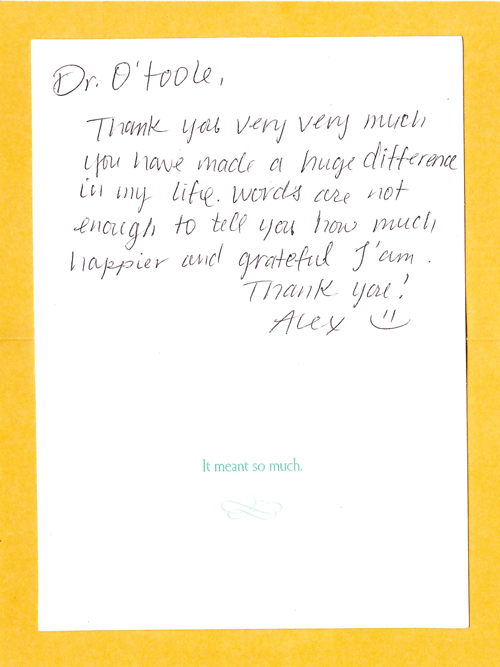 Dr. O'toole,
Thank you very very much
you have made a huge difference
in my life. Words are not
enough to tell you how much
happier and grateful I'am.
Thank you!
Alex
It meant so much.